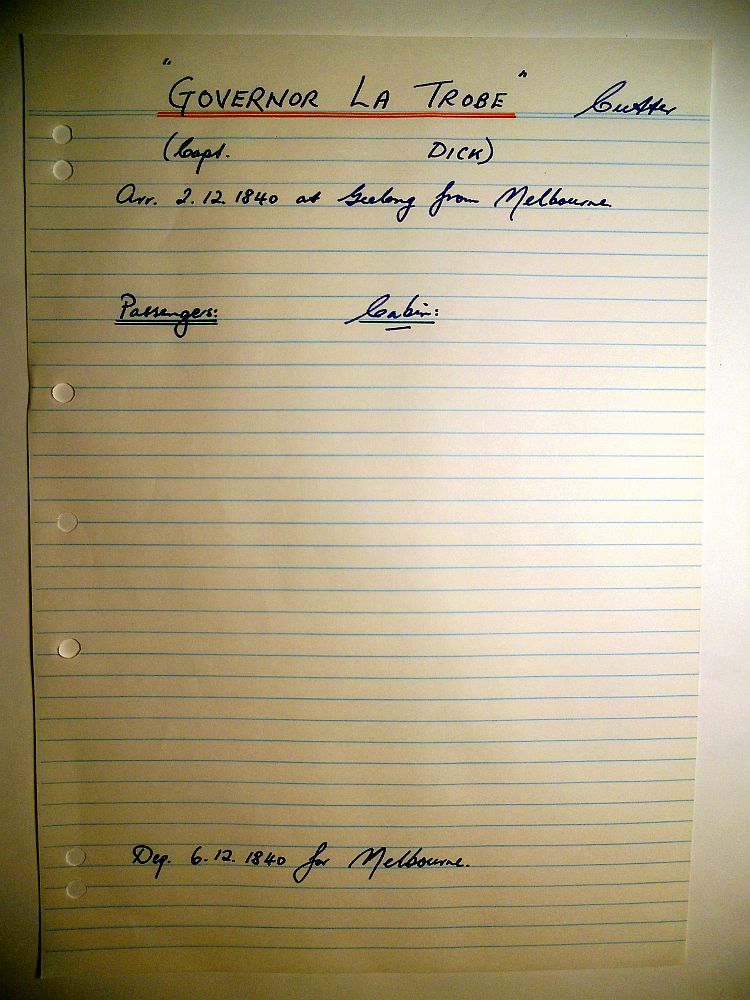 "GOVERNOR LA TROBE" Cutter
(Capt. DICK)
Arr. 2.12.1840 at Geelong from Melbourne
Passengers: Cabin:
Dep. 6.12.1840 for Melbourne.